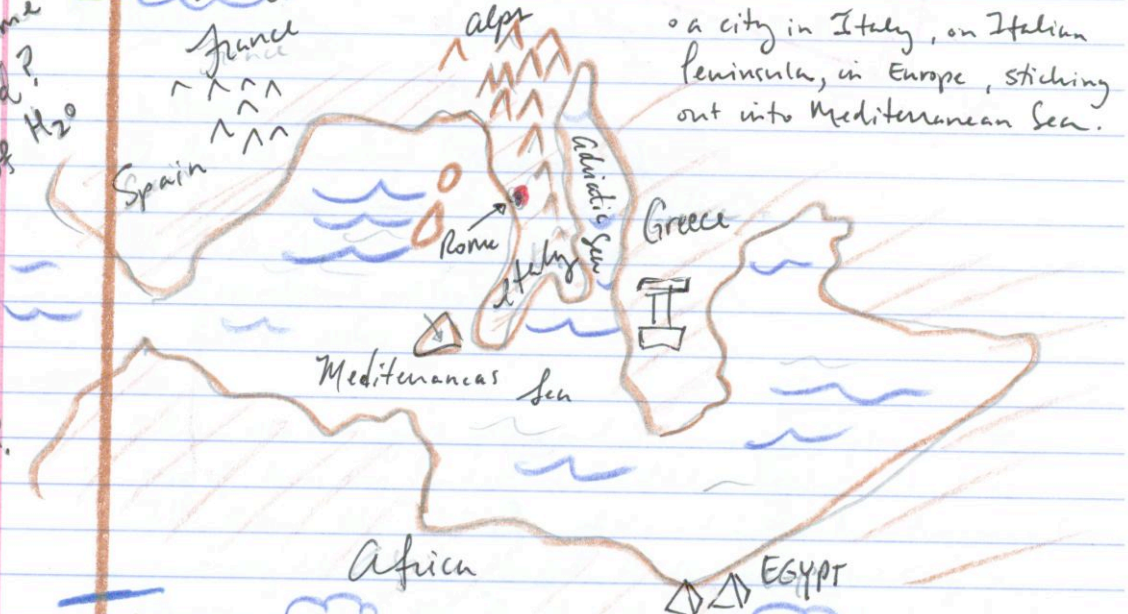 me
d?
H2O
france
alps
• a city in Italy, on Italian
Peninsula, in Europe, stiching
out into Mediterranean Sea.
Spain
adriatic Sea
Rome
Italy
Greece
Mediterranean
Sea
Africa
EGYPT